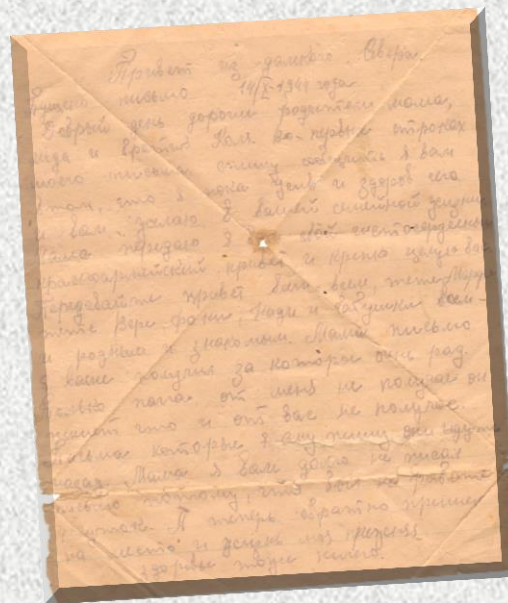 Привет из далёкого Севера.
Пущено письмо 14/X-1941 года
Добрый день дорогие родители мама,
и братик Коля. Во-первых строках
моего письма спешу сообщить я вам
о том, что я пока жив и здоров чего
и вам желаю в вашей семейной жизни
Мама передаю я свой чистосердечный
красноармейский привет и крепко целую вас
Передавайте привет всем, тёте Маруся
тёте Вере, Фане, Наде и бабушки всем
и родным и знакомым. Мама письмо
я ваше получил за которое очень рад.
Только папа от меня не получает он
пишет что и от вас не получает.
письма которые я ему пишу они идут
назад. Мама я вам долго не писал
только потому, что был на
А теперь обратно пришел
на место и жизнь моя
здоровье тоже ничего.